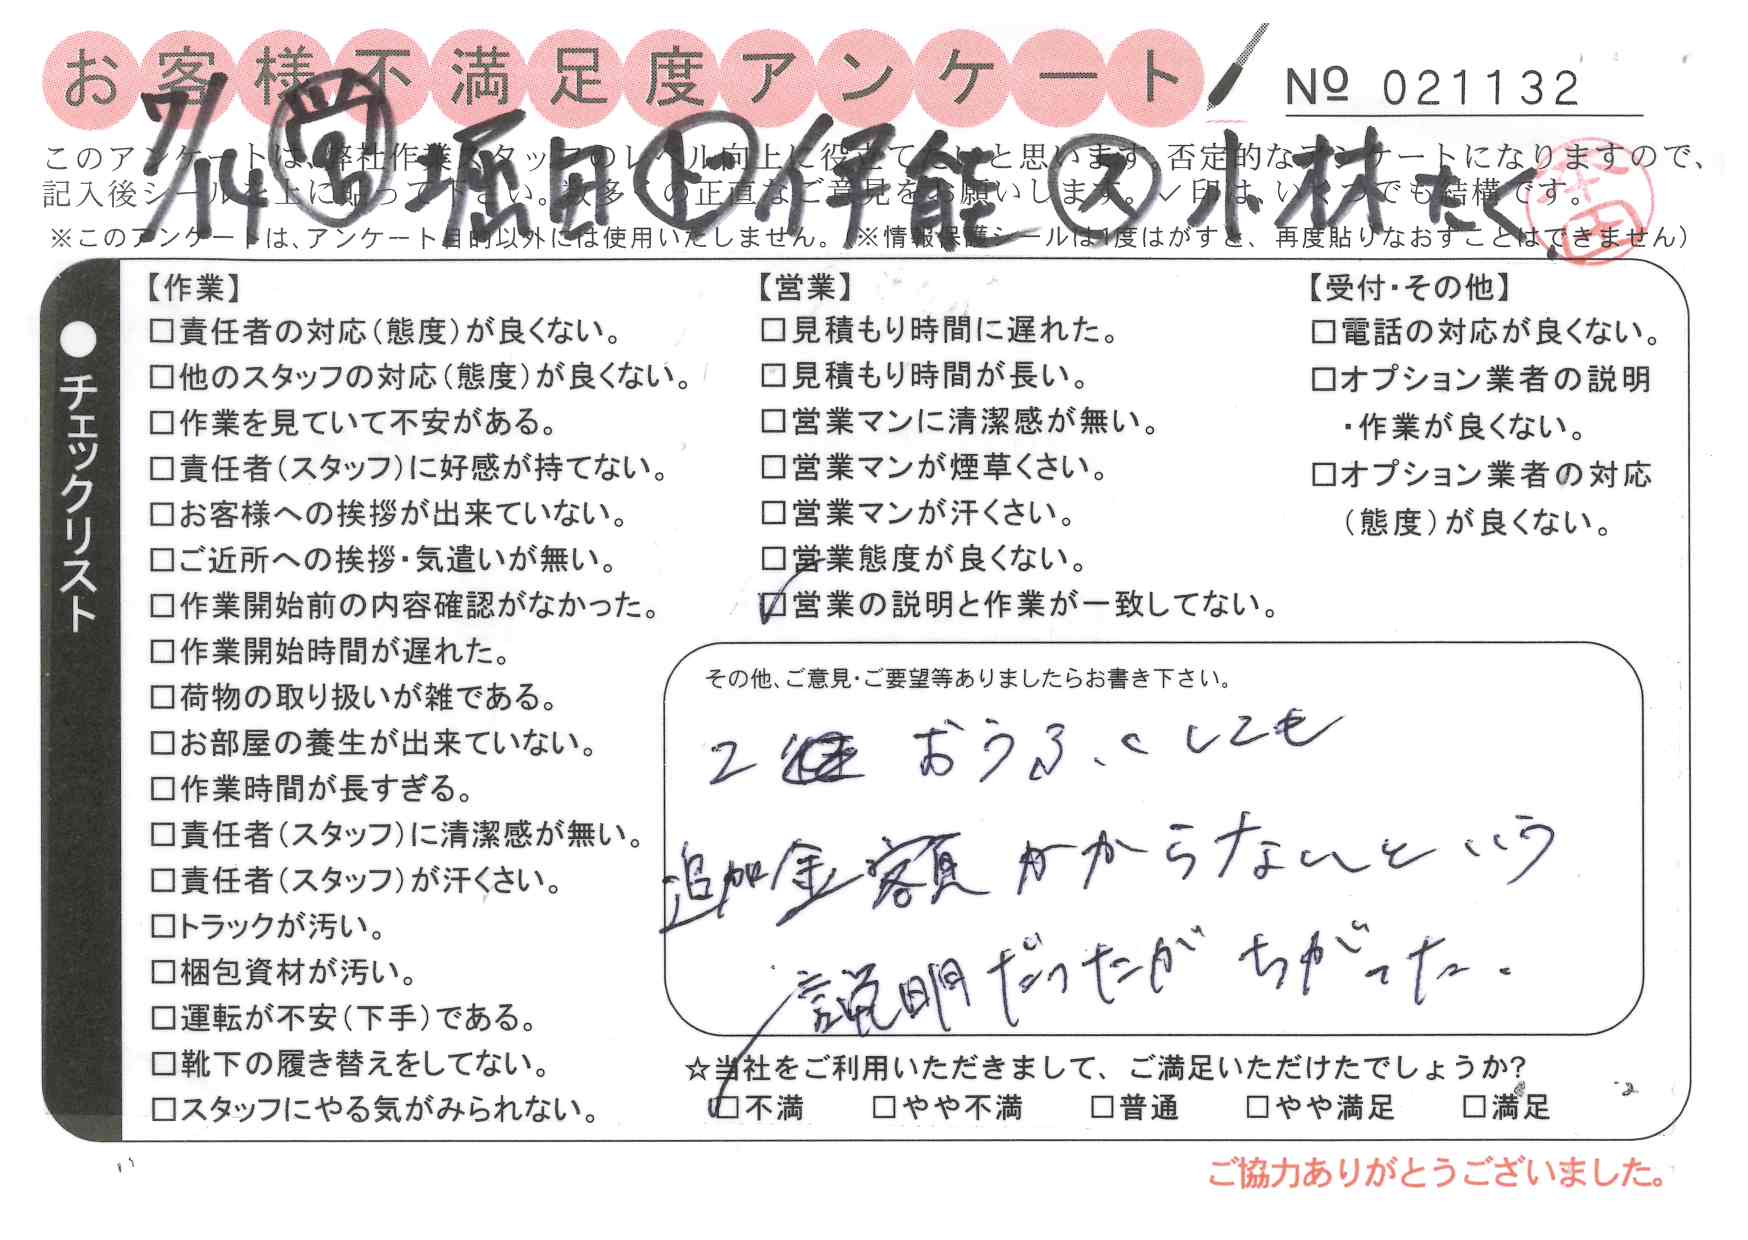 お客様不満足度アンケート
№ 021132
7/14 営 堀田 上 伊能 ス 小林たく
このアンケートは、弊社作業スタッフのレベル向上に役立てたいと思います。否定的なアンケートになりますので、
記入後シールを上に貼って下さい。数多くの正直なご意見をお願いします。✓印は、いくつでも結構です。
※このアンケートは、アンケート目的以外には使用いたしません。(※情報保護シールは1度はがすと、再度貼りなおすことはできません)
●チェックリスト
【作業】
□責任者の対応(態度)が良くない。
□他のスタッフの対応(態度)が良くない。
□作業を見ていて不安がある。
□責任者(スタッフ)に好感が持てない。
□お客様への挨拶が出来ていない。
□ご近所への挨拶・気遣いが無い。
□作業開始前の内容確認がなかった。
□作業開始時間が遅れた。
□荷物の取り扱いが雑である。
□お部屋の養生が出来ていない。
□作業時間が長すぎる。
□責任者(スタッフ)に清潔感が無い。
□責任者(スタッフ)が汗くさい。
□トラックが汚い。
□梱包資材が汚い。
□運転が不安(下手)である。
□靴下の履き替えをしてない。
□スタッフにやる気がみられない。
【営業】
□見積もり時間に遅れた。
□見積もり時間が長い。
□営業マンに清潔感が無い。
□営業マンが煙草くさい。
□営業マンが汗くさい。
□営業態度が良くない。
☑営業の説明と作業が一致してない。
【受付・その他】
□電話の対応が良くない。
□オプション業者の説明
・作業が良くない。
□オプション業者の対応
(態度)が良くない。
その他、ご意見・ご要望等ありましたらお書き下さい。
2 おうふくしても
追加金額かからないという
説明だったがちがった。
☆当社をご利用いただきまして、ご満足いただけたでしょうか?
☑不満 □やや不満 □普通 □やや満足 □満足
ご協力ありがとうございました。